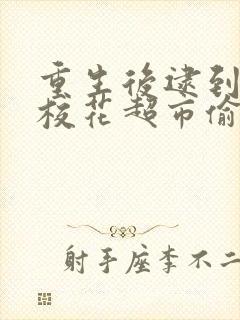 重生後逮到
校花超市偷
射手座李不二